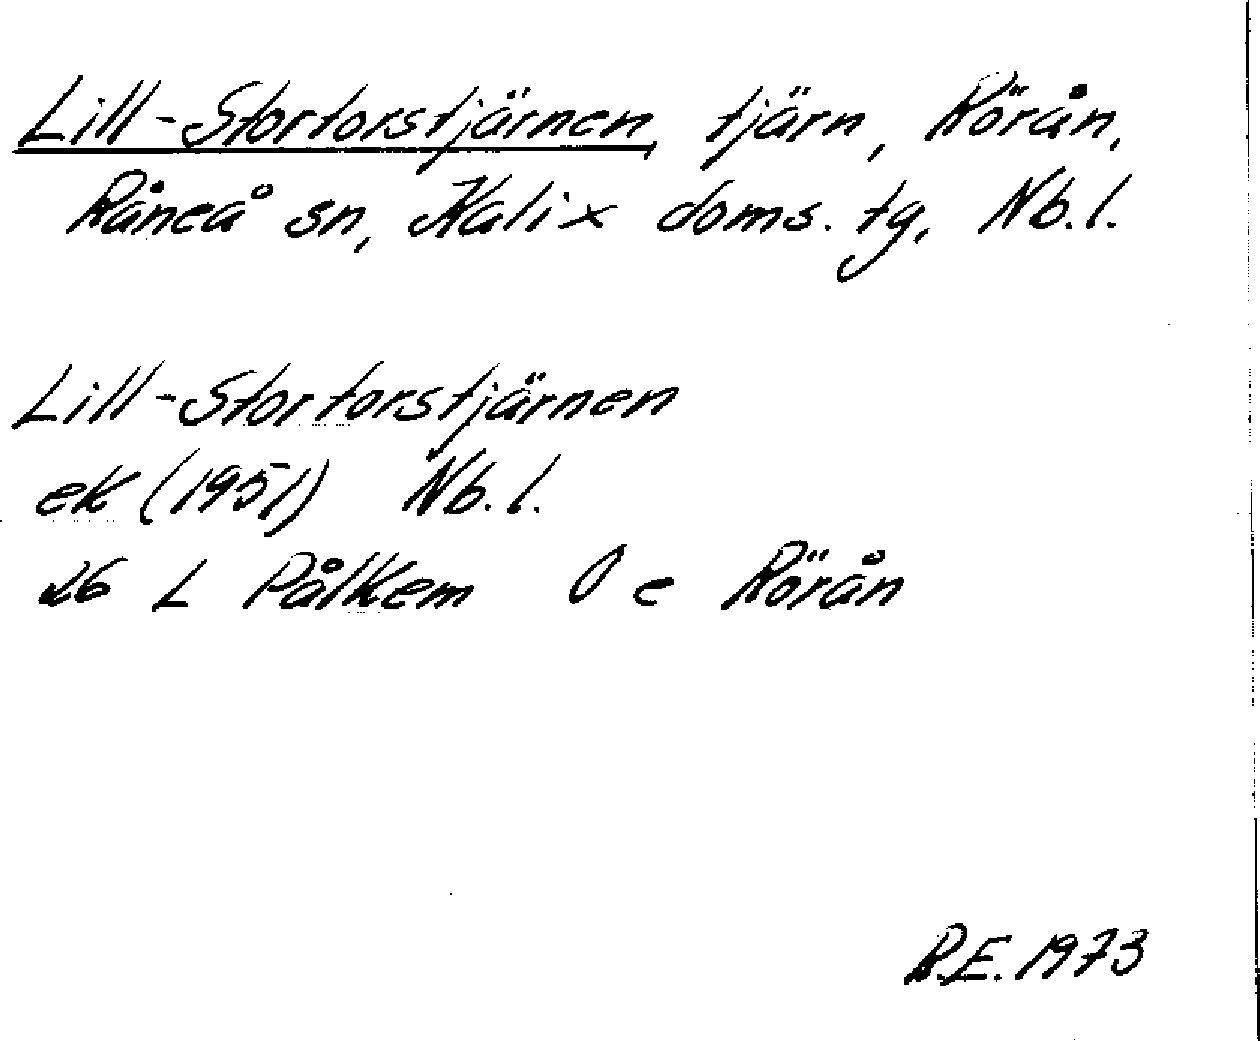 Lill-Stortorstjärnen, tjärn, Rörån,
Råneå sn, Kalix doms. tg, Nb. l.
Lill-Stortorstjärnen
ek (1951) Nb. l.
26 L Pålkem 0 e Rörån
R.E. 1973